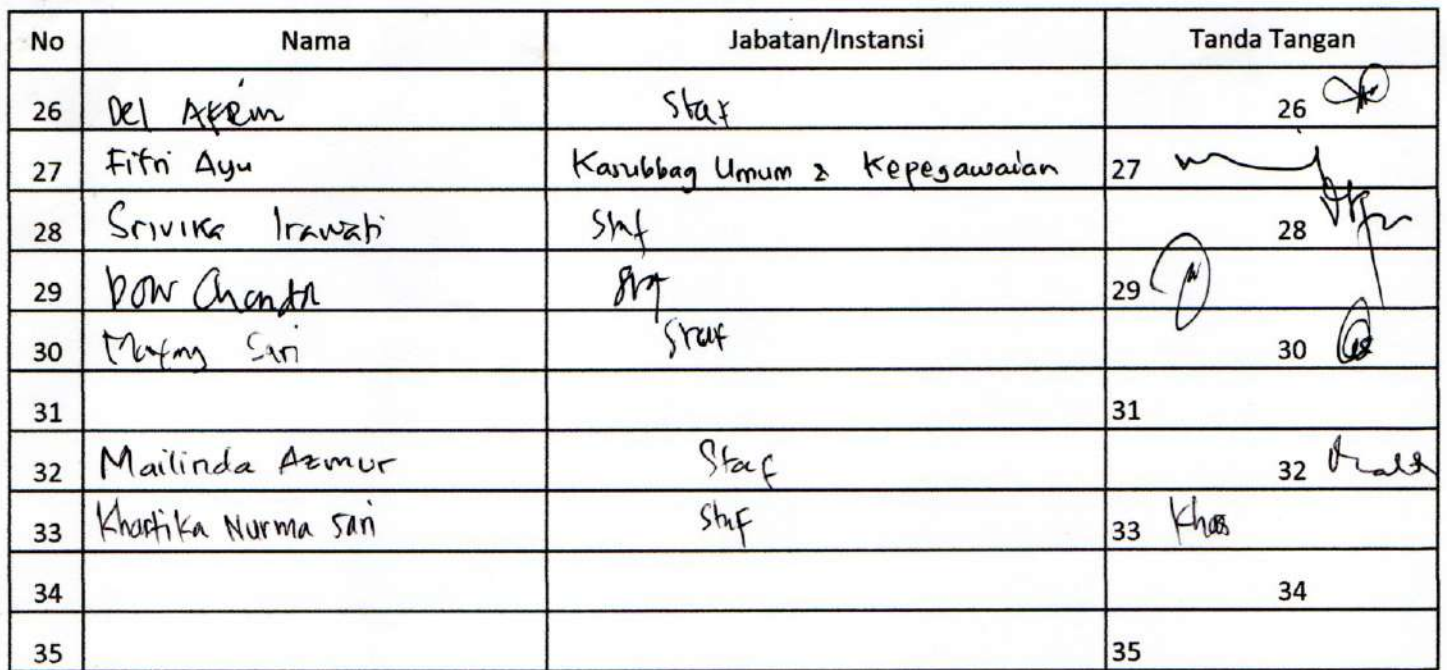 No Nama Jabatan/Instansi Tanda Tangan
26 Del Staf 26
27 Fitri Ayu Kasubbag Umum & Kepegawaian 27
28 Srivika Irawati Staf 28
29 Staf 29
30 Sari Staf 30
31 31
32 Mailinda Azmur Staf 32
33 Khartika Nurma Sari Staf 33 Khas
34 34
35 35